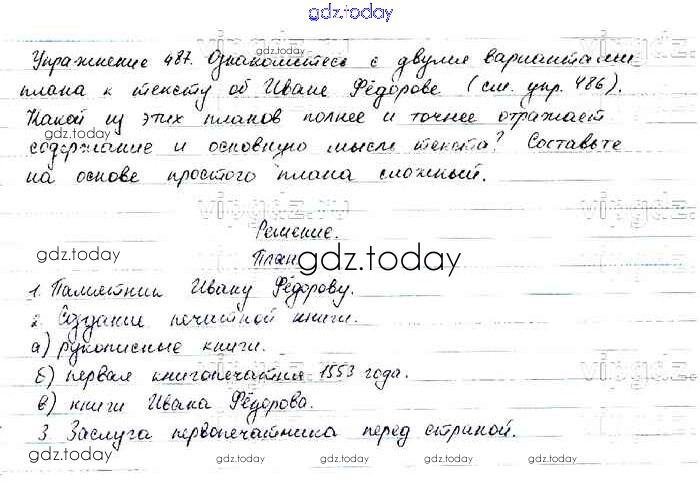 gdz.today
Упражнение 487. Ознакомьтесь с двумя вариантами
плана к тексту об Иване Фёдорове (см. упр. 486).
Какой из этих планов полнее и точнее отражает
содержание и основную мысль текста? Составьте
на основе простого плана сложный.
Решение.
План
1. Памятник Ивану Фёдорову.
2. Создание печатной книги.
а) рукописные книги.
б) первая книгопечатня 1553 года.
в) книги Ивана Фёдорова.
3 Заслуга первопечатника перед страной.
gdz.today
gdz.today
gdz.today
gdz.today
gdz.today
gdz.today
gdz.today
gdz.today